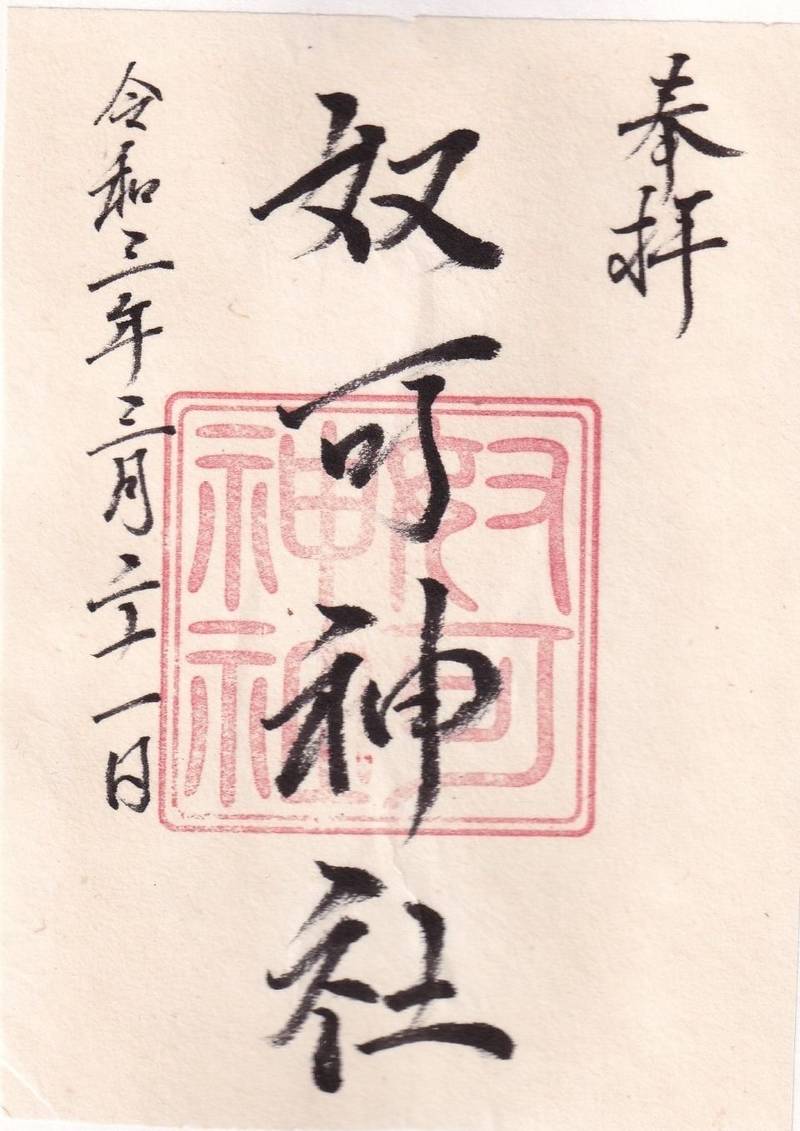 奉拝
奴可神社
奴可
神社
令和三年三月二十一日